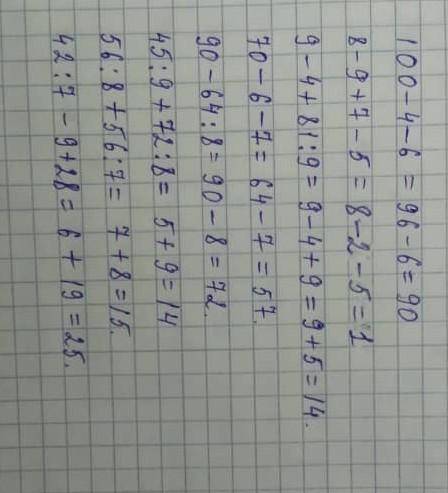 100-4-6 = 96-6=90
8-9+7-5 = 8-2-5=1
9-4+81:9= 9-4+9=9+5=14.
70-6-7= 64-7 =57.
90-64:8= 90-8=72.
45:9+72:8= 5+9=14
56:8+56:7= 7+8=15.
42:7-9+28= 6+19=25.